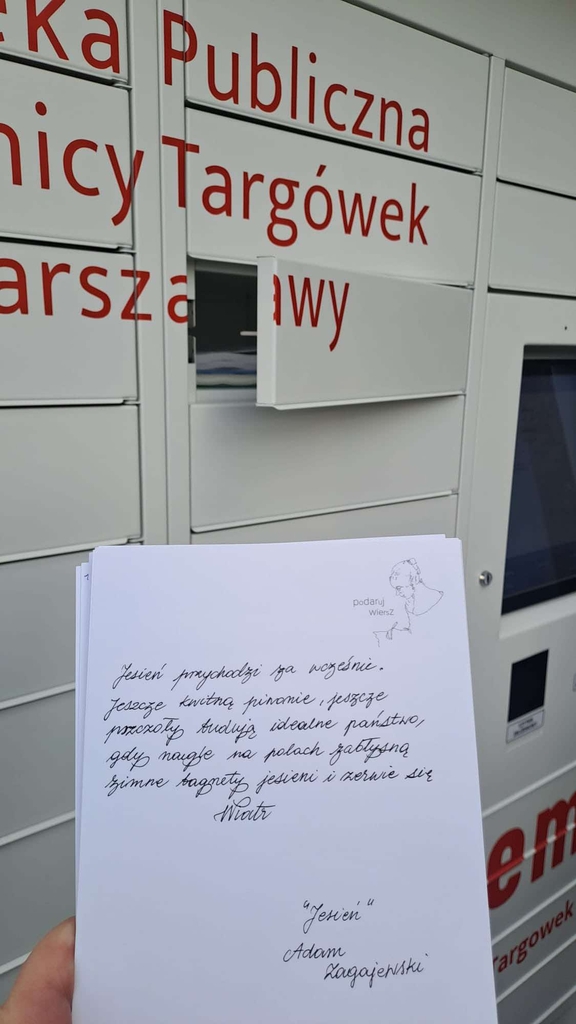 eka Publiczna
nicy Targówek
arsza awy
podaruj
wiersz
Jesień przychodzi za wcześnie.
Jeszcze kwitną piwonie, jeszcze
pszczoły budują idealne państwo,
gdy nagle na polach zabłysną
zimne bagnety jesieni i zerwie się
Wiatr
"Jesień"
Adam
Zagajewski
em
Targówek